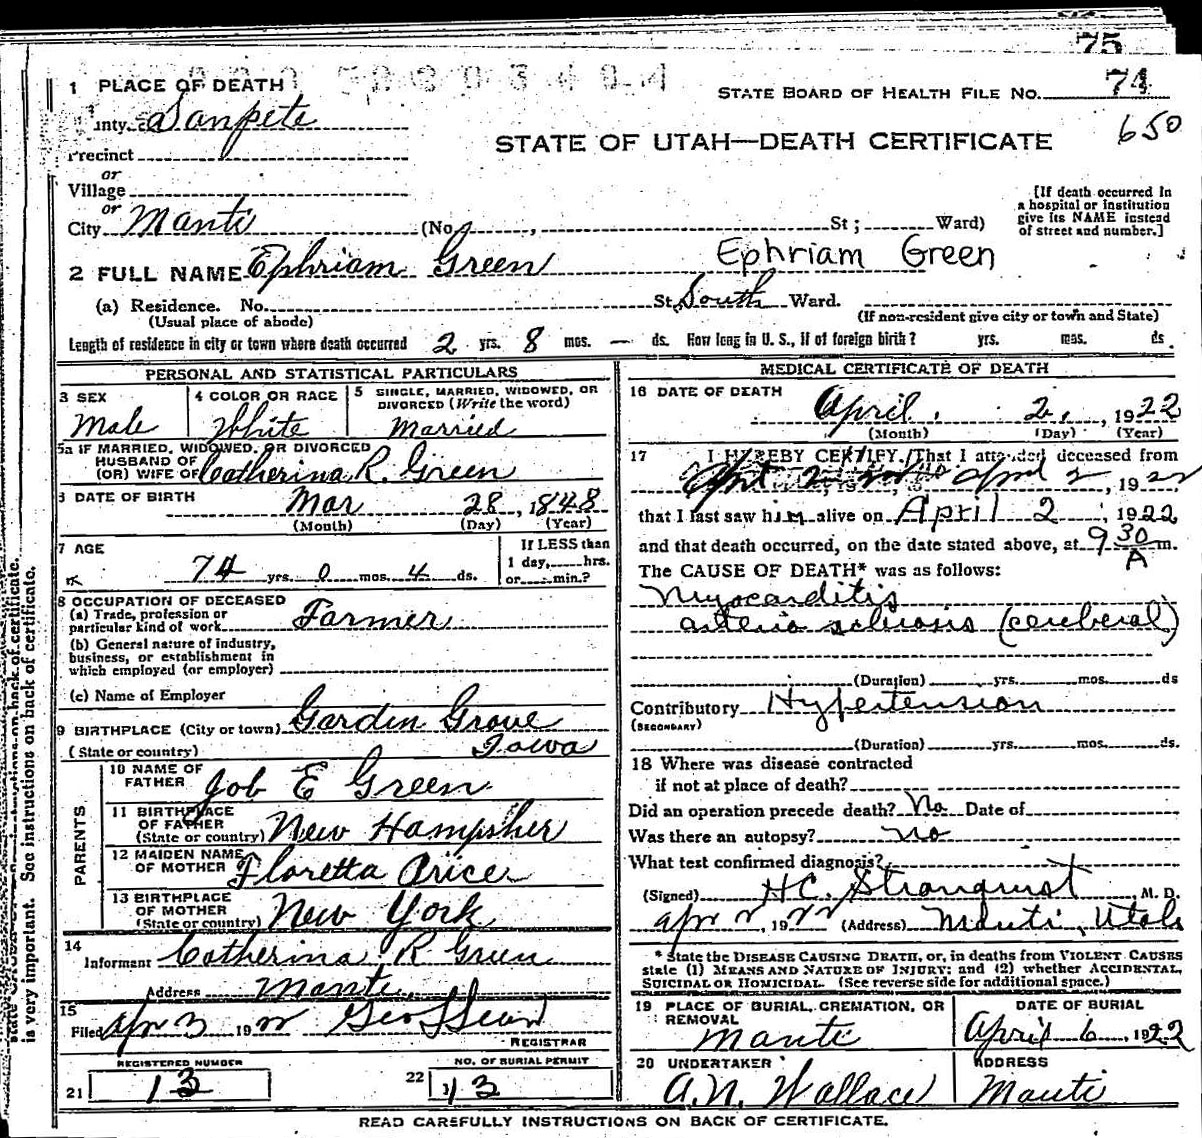 75
1 PLACE OF DEATH
STATE BOARD OF HEALTH FILE No. 74
unty Sanpete
650
STATE OF UTAH—DEATH CERTIFICATE
Precinct
or
Village
or
City Manti (No , St ; Ward)
[If death occurred in
a hospital or institution
give its NAME instead
of street and number.]
2 FULL NAME Ephriam Green Ephriam Green
(a) Residence. No. St. South Ward.
(Usual place of abode) (If non-resident give city or town and State)
Length of residence in city or town where death occurred 2 yrs. 8 mos. — ds. How long in U. S., if of foreign birth? yrs. mos. ds.
PERSONAL AND STATISTICAL PARTICULARS
3 SEX
Male
4 COLOR OR RACE
White
5 SINGLE, MARRIED, WIDOWED, OR
DIVORCED (Write the word)
Married
5a IF MARRIED, WIDOWED, OR DIVORCED
HUSBAND OF
(OR) WIFE OF Catherina R. Green
6 DATE OF BIRTH
Mar 28, 1848
(Month) (Day) (Year)
7 AGE
74 yrs. 0 mos. 4 ds.
If LESS than
1 day, hrs.
or min.?
8 OCCUPATION OF DECEASED
(a) Trade, profession or
particular kind of work Farmer
(b) General nature of industry,
business, or establishment in
which employed (or employer)
(c) Name of Employer
9 BIRTHPLACE (City or town) Garden Grove
(State or country) Iowa
PARENTS
10 NAME OF
FATHER Job E Green
11 BIRTHPLACE
OF FATHER
(State or country) New Hampsher
12 MAIDEN NAME
OF MOTHER Floretta Price
13 BIRTHPLACE
OF MOTHER
(State or country) New York
14
Informant Catherina R Green
Address Manti
15
Filed Apr 3 1922 Geo
REGISTRAR
REGISTERED NUMBER
21 13
NO. OF BURIAL PERMIT
22 13
MEDICAL CERTIFICATE OF DEATH
16 DATE OF DEATH
April 2, 1922
(Month) (Day) (Year)
17 I HEREBY CERTIFY, That I attended deceased from
April 2 1922 to April 2, 1922
that I last saw him alive on April 2, 1922
and that death occurred, on the date stated above, at 9 30 A m.
The CAUSE OF DEATH* was as follows:
Myocarditis
arterio sclerosis (cerebral)
(Duration) yrs. mos. ds
Contributory Hypertension
(SECONDARY)
(Duration) yrs. mos. ds.
18 Where was disease contracted
if not at place of death?
Did an operation precede death? No Date of
Was there an autopsy? no
What test confirmed diagnosis?
(Signed) HC. Stranquist M. D.
Apr 2, 1922 (Address) Manti, Utah
* State the DISEASE CAUSING DEATH, or, in deaths from VIOLENT CAUSES
state (1) MEANS AND NATURE OF INJURY; and (2) whether ACCIDENTAL,
SUICIDAL OR HOMICIDAL. (See reverse side for additional space.)
19 PLACE OF BURIAL, CREMATION, OR
REMOVAL
Manti
DATE OF BURIAL
April 6, 1922
20 UNDERTAKER
A. N. Wallace
ADDRESS
Manti
READ CAREFULLY INSTRUCTIONS ON BACK OF CERTIFICATE.
is very important. See instructions on back of certificate.